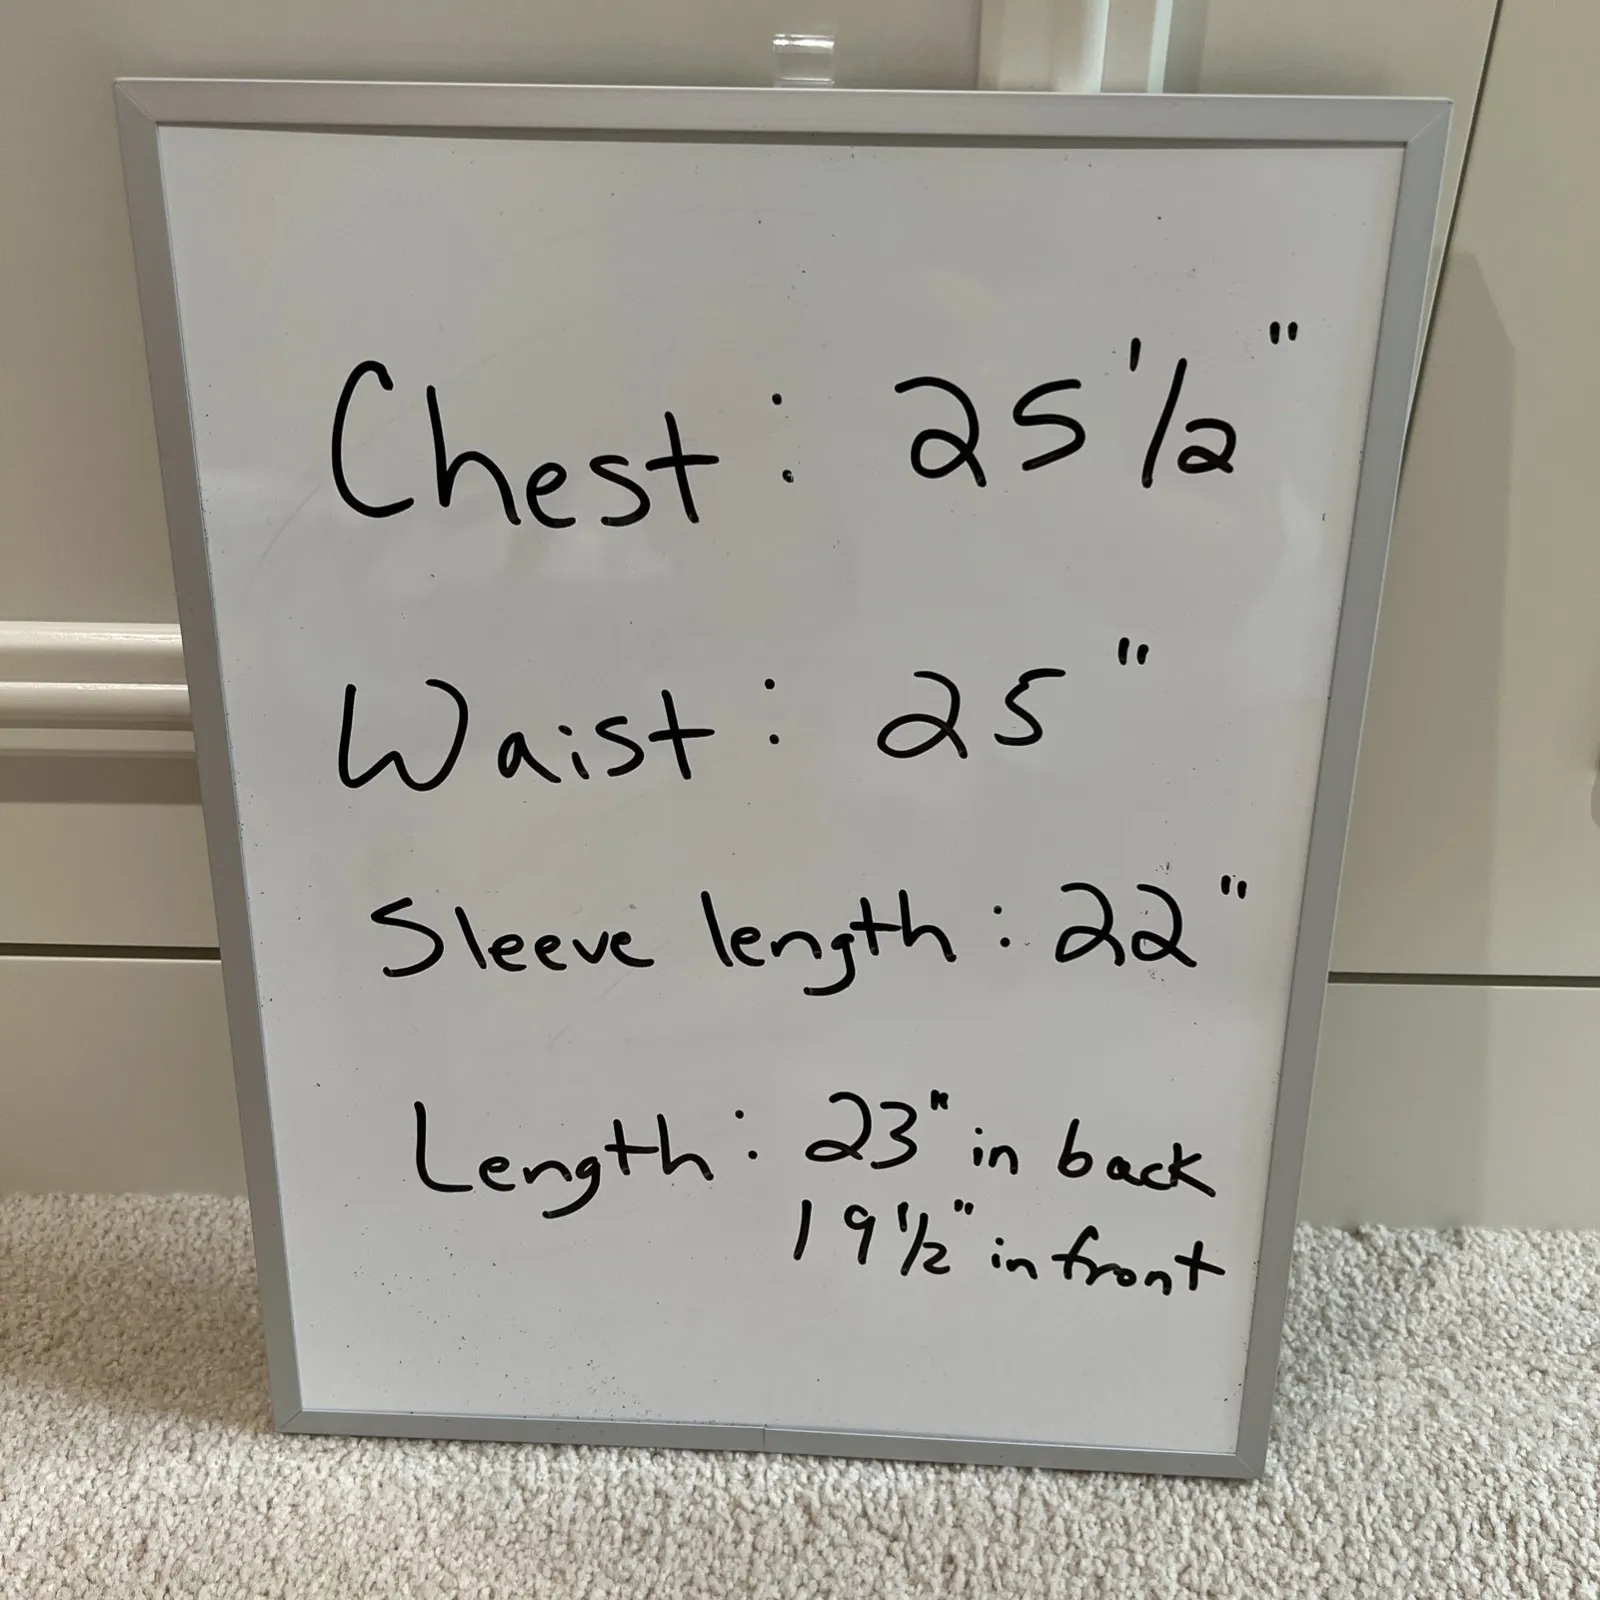 Chest: 25 1/2"
Waist: 25"
Sleeve length: 22"
Length: 23" in back
19 1/2" in front